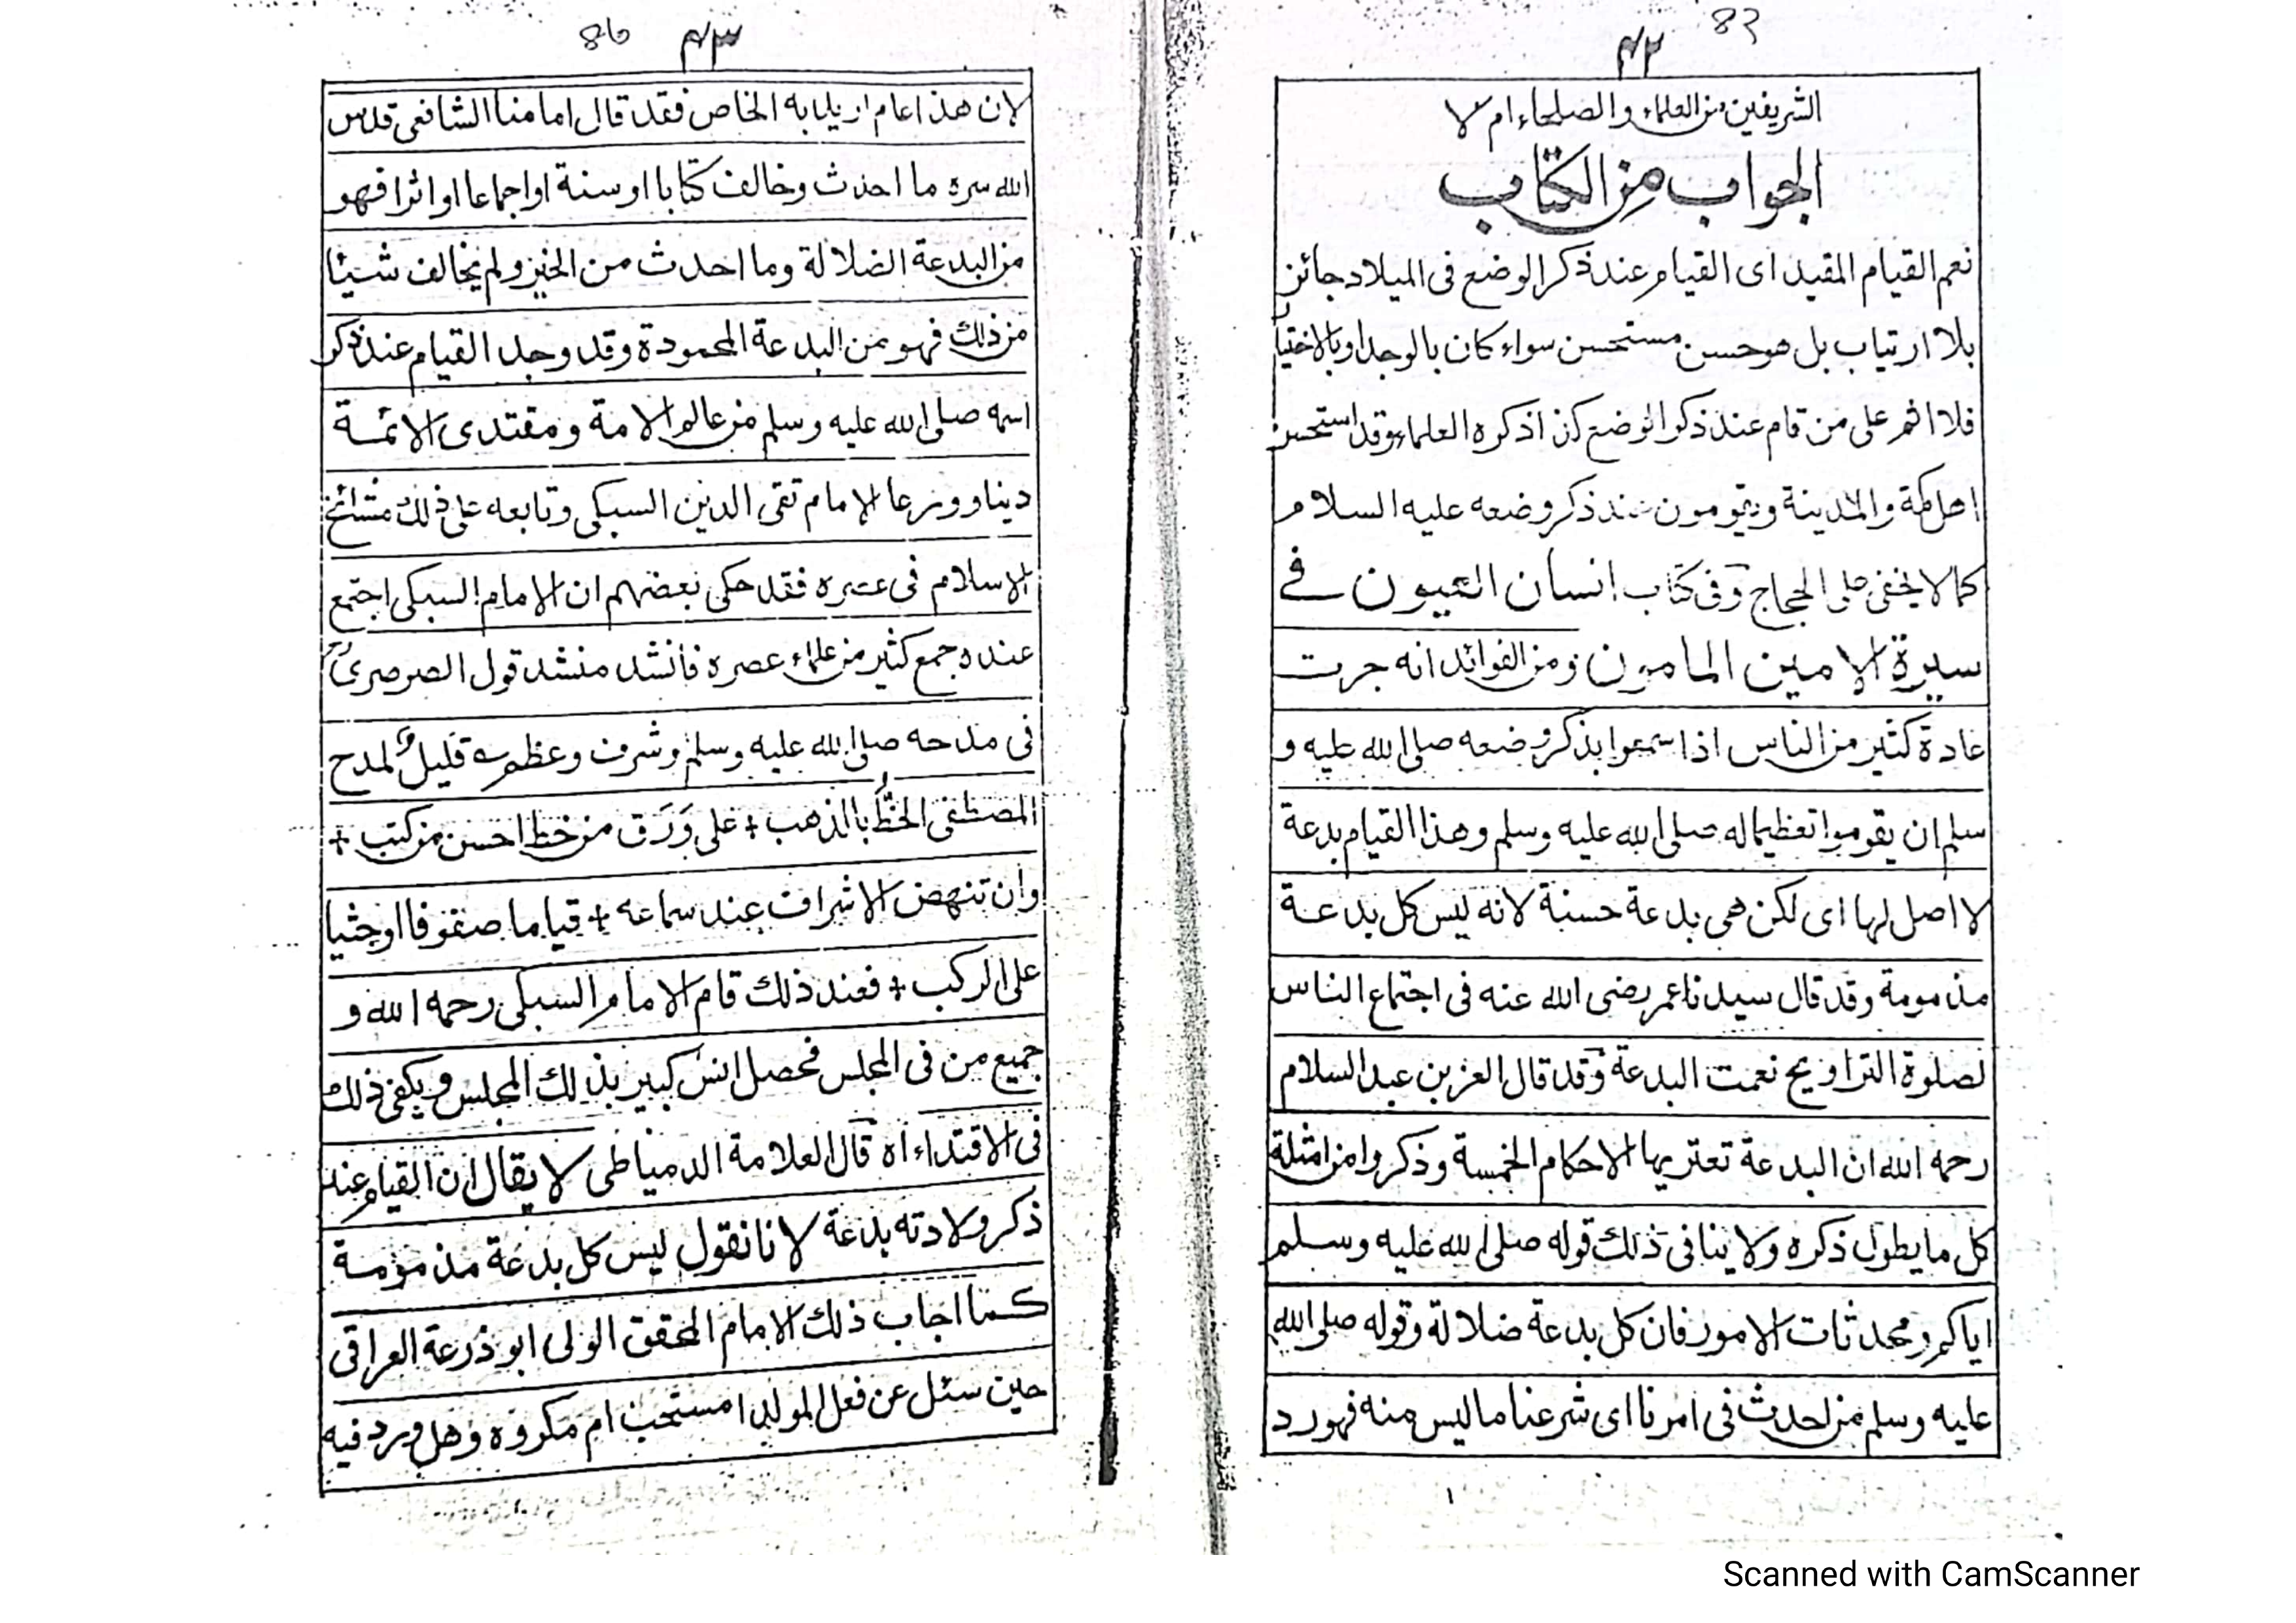 83
۴۲
الشريفين من العلماء والصلحاء ام لا
الجواب من الكتاب
نعم القيام المقيد اى القيام عند ذكر الوضع فى الميلاد جائز
بلا ارتياب بل هو حسن مستحسن سواء كان بالوجد او بالاختيا
فلا اثم على من قام عند ذكر الوضع كذا ذكره العلماء وقد استحسن
اهل مكة والمدينة ويقومون عند ذكر وضعه عليه السلام
كما لا يخفى على الحجاج وفى كتاب انسان العيون فے
سيرة الامين المامون ومن الفوائد انه جرت
عادة كثير من الناس اذا سمعوا بذكر وضعه صلى الله عليه و
سلم ان يقوموا تعظيما له صلى الله عليه وسلم وهذا القيام بدعة
لا اصل لها اى لكن هى بدعة حسنة لانه ليس كل بدعة
مذمومة وقد قال سيدنا عمر رضى الله عنه فى اجتماع الناس
لصلوة التراويح نعمت البدعة وقد قال العز بن عبد السلام
رحمه الله ان البدعة تعتريها الاحكام الخمسة وذكروا من امثلة
كل ما يطول ذكره ولا ينافى ذلك قوله صلى الله عليه وسلم
اياكم ومحدثات الامور فان كل بدعة ضلالة وقوله صلى الله
عليه وسلم من احدث فى امرنا اى شرعنا ما ليس منه فهو رد
86
۴۳
لان هذا عام اريد به الخاص فقد قال امامنا الشافعى قدس
الله سره ما احدث وخالف كتابا او سنة او اجماعا او اثرا فهو
من البدعة الضلالة وما احدث من الخير ولم يخالف شيئا
من ذلك فهو من البدعة المحمودة وقد وجد القيام عند ذكر
اسمه صلى الله عليه وسلم من عالم الامة ومقتدى الائمة
دينا وورعا الامام تقى الدين السبكى وتابعه على ذلك مشائخ
الاسلام فى عصره فقد حكى بعضهم ان الامام السبكى اجتمع
عنده جمع كثير من علماء عصره فانشد منشد قول الصرصرى
فى مدحه صلى الله عليه وسلم وشرف وعظم ؎ قليل لمدح
المصطفى الخطُّ بالذهب + على وَرَق من خط احسن من كتب +
وان تنهض الاشراف عند سماعه + قياما صفوفا او جثيا
على الركب + فعند ذلك قام الامام السبكى رحمه الله و
جميع من فى المجلس فحصل انس كبير بذلك المجلس ويكفى ذلك
فى الاقتداء اه قال العلامة الدمياطى لا يقال ان القيام عند
ذكر ولادته بدعة لانا نقول ليس كل بدعة مذمومة
كما اجاب ذلك الامام المحقق الولى ابو ذرعة العراقى
حين سئل عن فعل المولد امستحب ام مكروه وهل ورد فيه
Scanned with CamScanner